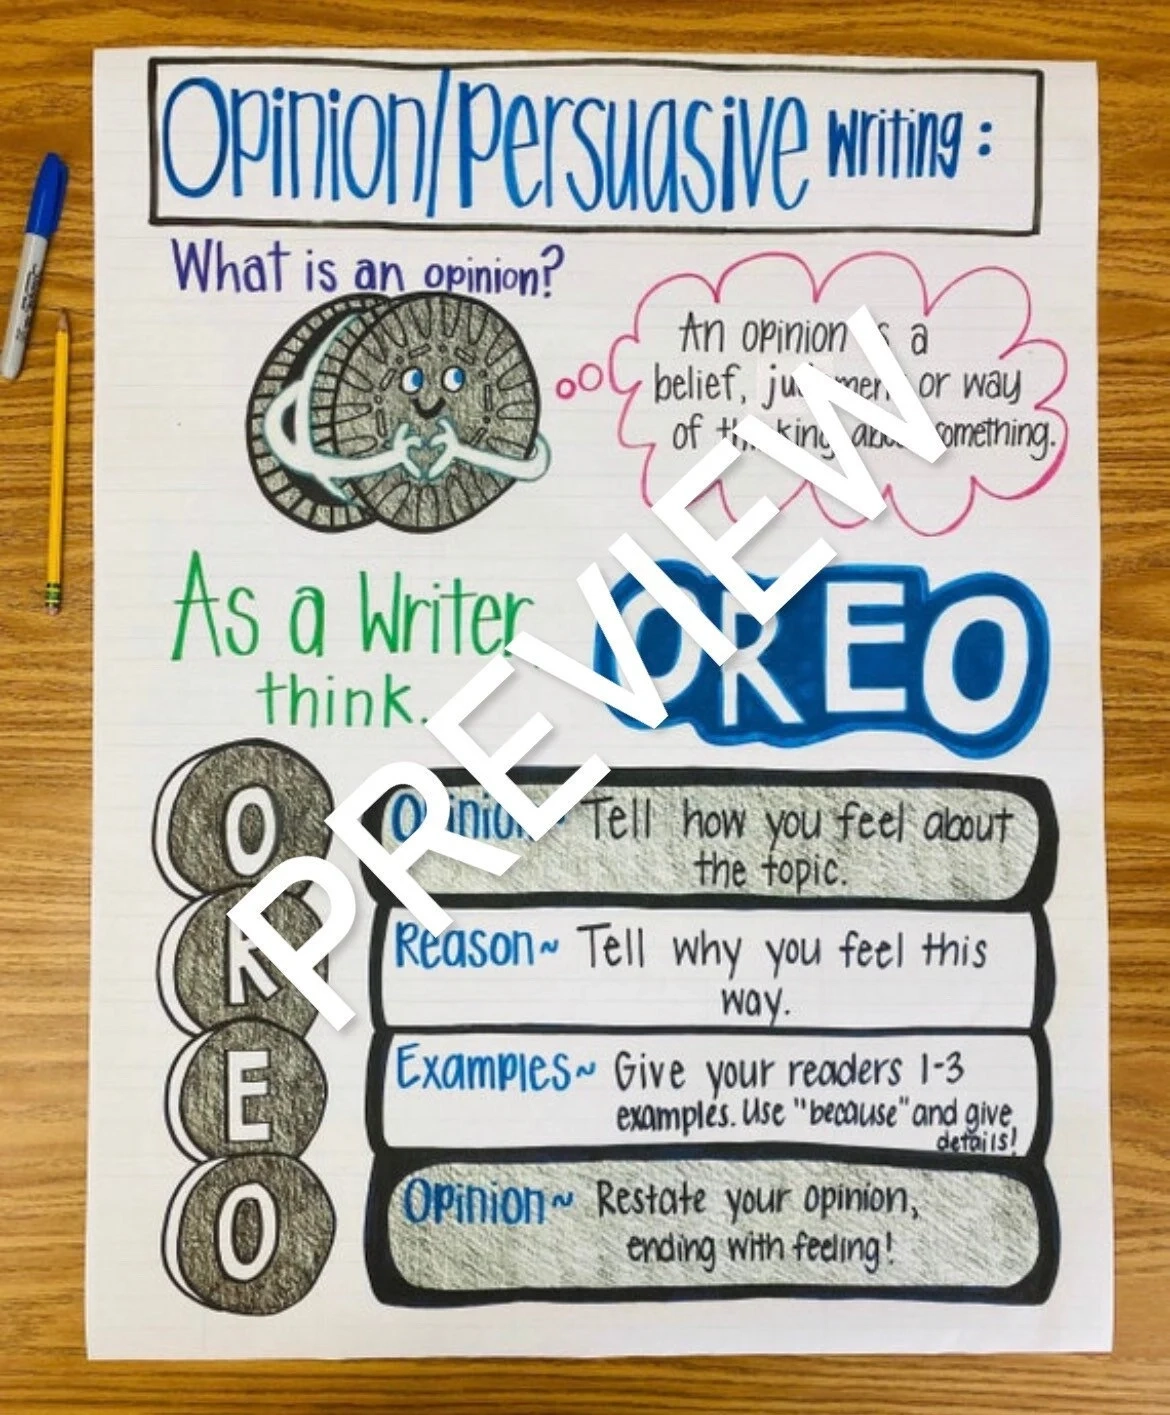 Opinion/Persuasive Writing:
What is an opinion?
An opinion is a
belief, judgment or way
of thinking about something.
As a Writer,
think.
OREO
O
Opinion~ Tell how you feel about
the topic.
R
Reason~ Tell why you feel this
way.
E
Examples~ Give your readers 1-3
examples. Use "because" and give
details!
O
Opinion~ Restate your opinion,
ending with feeling!
PREVIEW